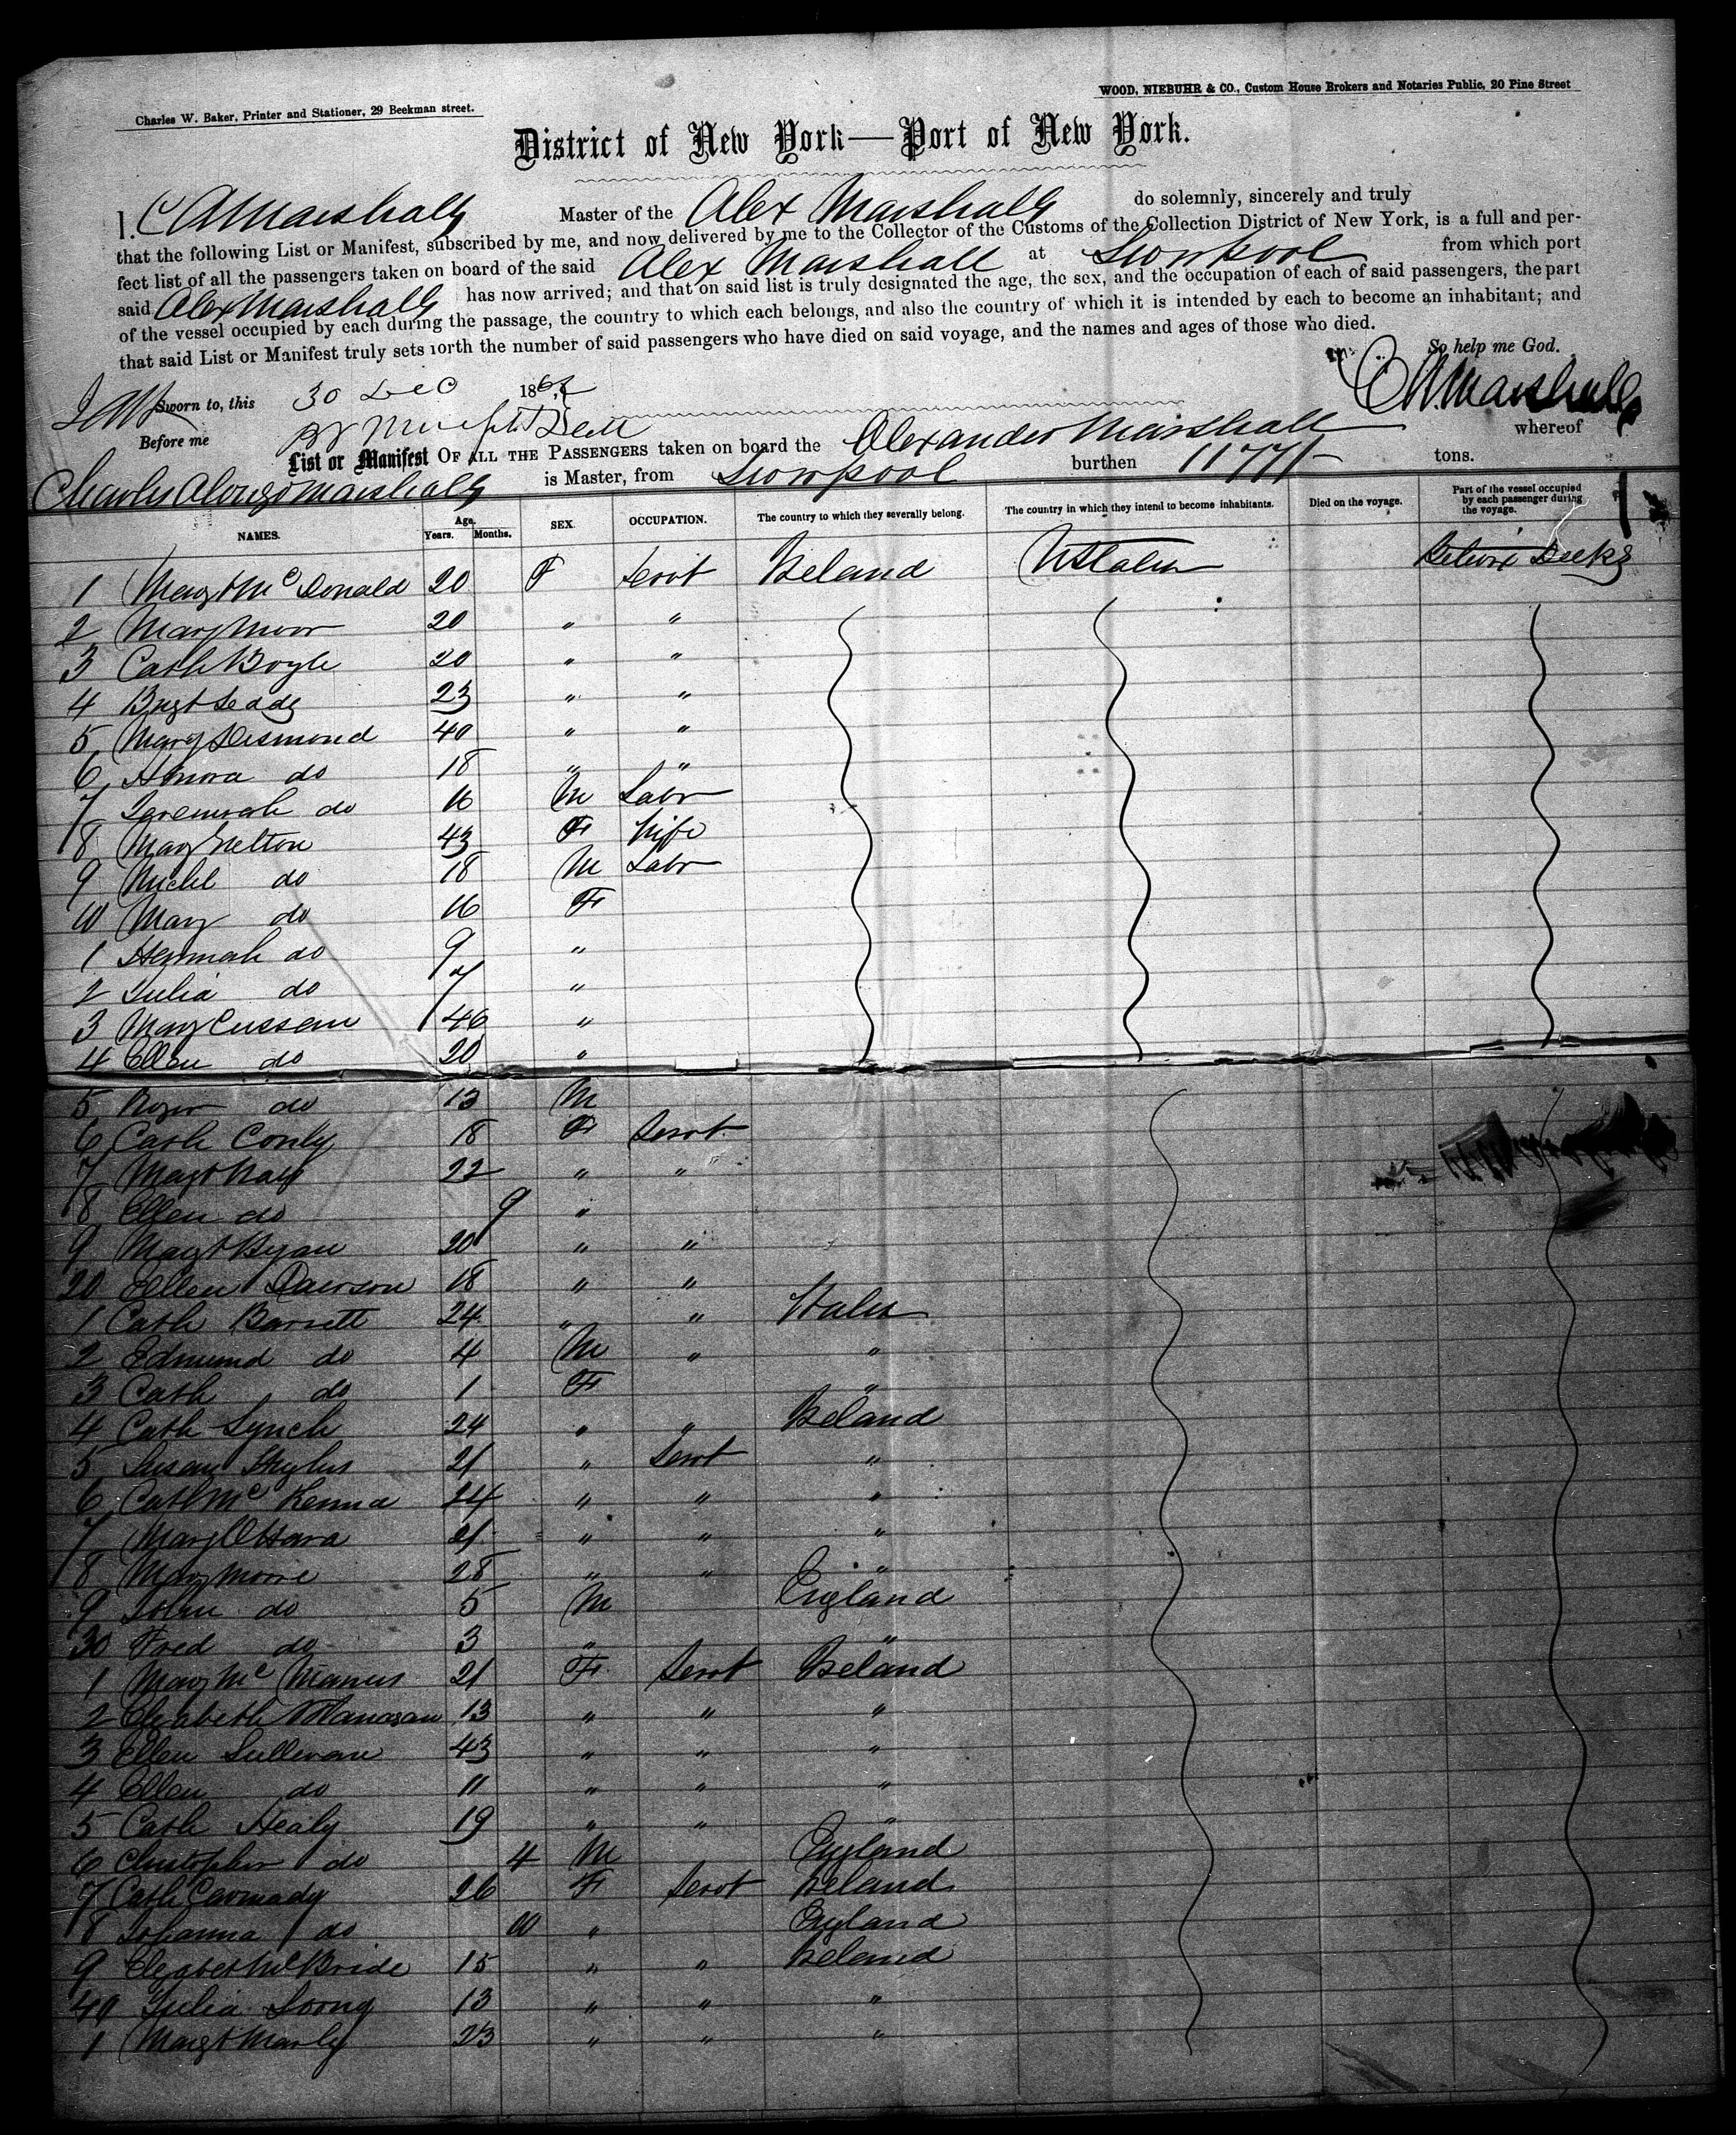 Charles W. Baker, Printer and Stationer, 29 Beekman street.
WOOD, NIEBUHR & CO., Custom House Brokers and Notaries Public, 20 Pine Street
District of New York—Port of New York.
I, C A Marshall Master of the Alex Marshall do solemnly, sincerely and truly
that the following List or Manifest, subscribed by me, and now delivered by me to the Collector of the Customs of the Collection District of New York, is a full and per-
fect list of all the passengers taken on board of the said Alex Marshall at Liverpool from which port
said Alex Marshall has now arrived; and that on said list is truly designated the age, the sex, and the occupation of each of said passengers, the part
of the vessel occupied by each during the passage, the country to which each belongs, and also the country of which it is intended by each to become an inhabitant; and
that said List or Manifest truly sets forth the number of said passengers who have died on said voyage, and the names and ages of those who died.
So help me God.
Sworn to, this 30 Dec 186
C A Marshall
Before me
List or Manifest OF ALL THE PASSENGERS taken on board the Alexander Marshall whereof
Charles Alonzo Marshall is Master, from Liverpool burthen 1177 tons.
NAMES. Age. Years. Months. SEX. OCCUPATION. The country to which they severally belong. The country in which they intend to become inhabitants. Died on the voyage. Part of the vessel occupied by each passenger during the voyage.
1 Margt McDonald 20 F Servt Ireland UStates Betwix Decks
2 Mary Moor 20 " "
3 Cath Boyle 20 " "
4 Brgt Leddy 23 " "
5 Mary Desmond 40 " "
6 Honora do 18 " "
7 Jeremiah do 16 M Labr
8 Mary Nelton 43 F Wife
9 Michl do 18 M Labr
10 Mary do 16 F
1 Hannah do 9 "
2 Julia do 7 "
3 Mary Cussen 46 "
4 Ellen do 20 "
5 Roger do 13 M
6 Cath Conly 18 F Servt
7 Margt 22 " "
8 Ellen do 9 "
9 Margt Ryan 20 " "
20 Ellen Dawson 18 " "
1 Cath Barrett 24 " " Wales
2 Edmund do 4 M " "
3 Cath do 1 F "
4 Cath Lynch 24 " " Ireland
5 Susan 21 " Servt "
6 Cath McKenna 24 " " "
7 Mary OHara 21 " " "
8 Mary Moore 28 " " "
9 John do 5 M England
30 Fred do 3 " "
1 Mary McManus 21 F Servt Ireland
2 Elizabeth 13 " " "
3 Ellen Sullivan 43 " " "
4 Ellen do 11 " " "
5 Cath Healy 19 " " "
6 Christopher do 4 M England
7 Cath Carmady 26 F Servt Ireland
8 Johanna do 10 " England
9 Elizabet McBride 15 " " Ireland
40 Julia Loong 13 " " "
1 Margt Marly 23 " " "